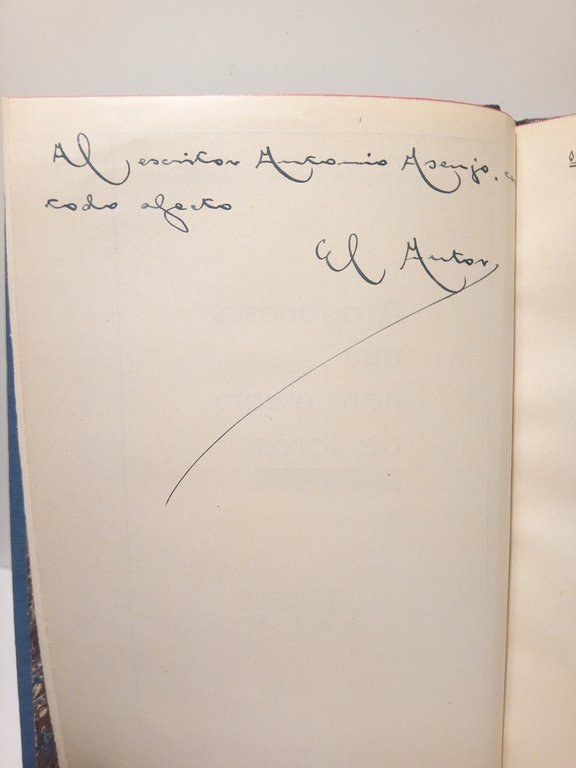 Al escritor Antonio Asenjo, c
todo afecto
El Autor